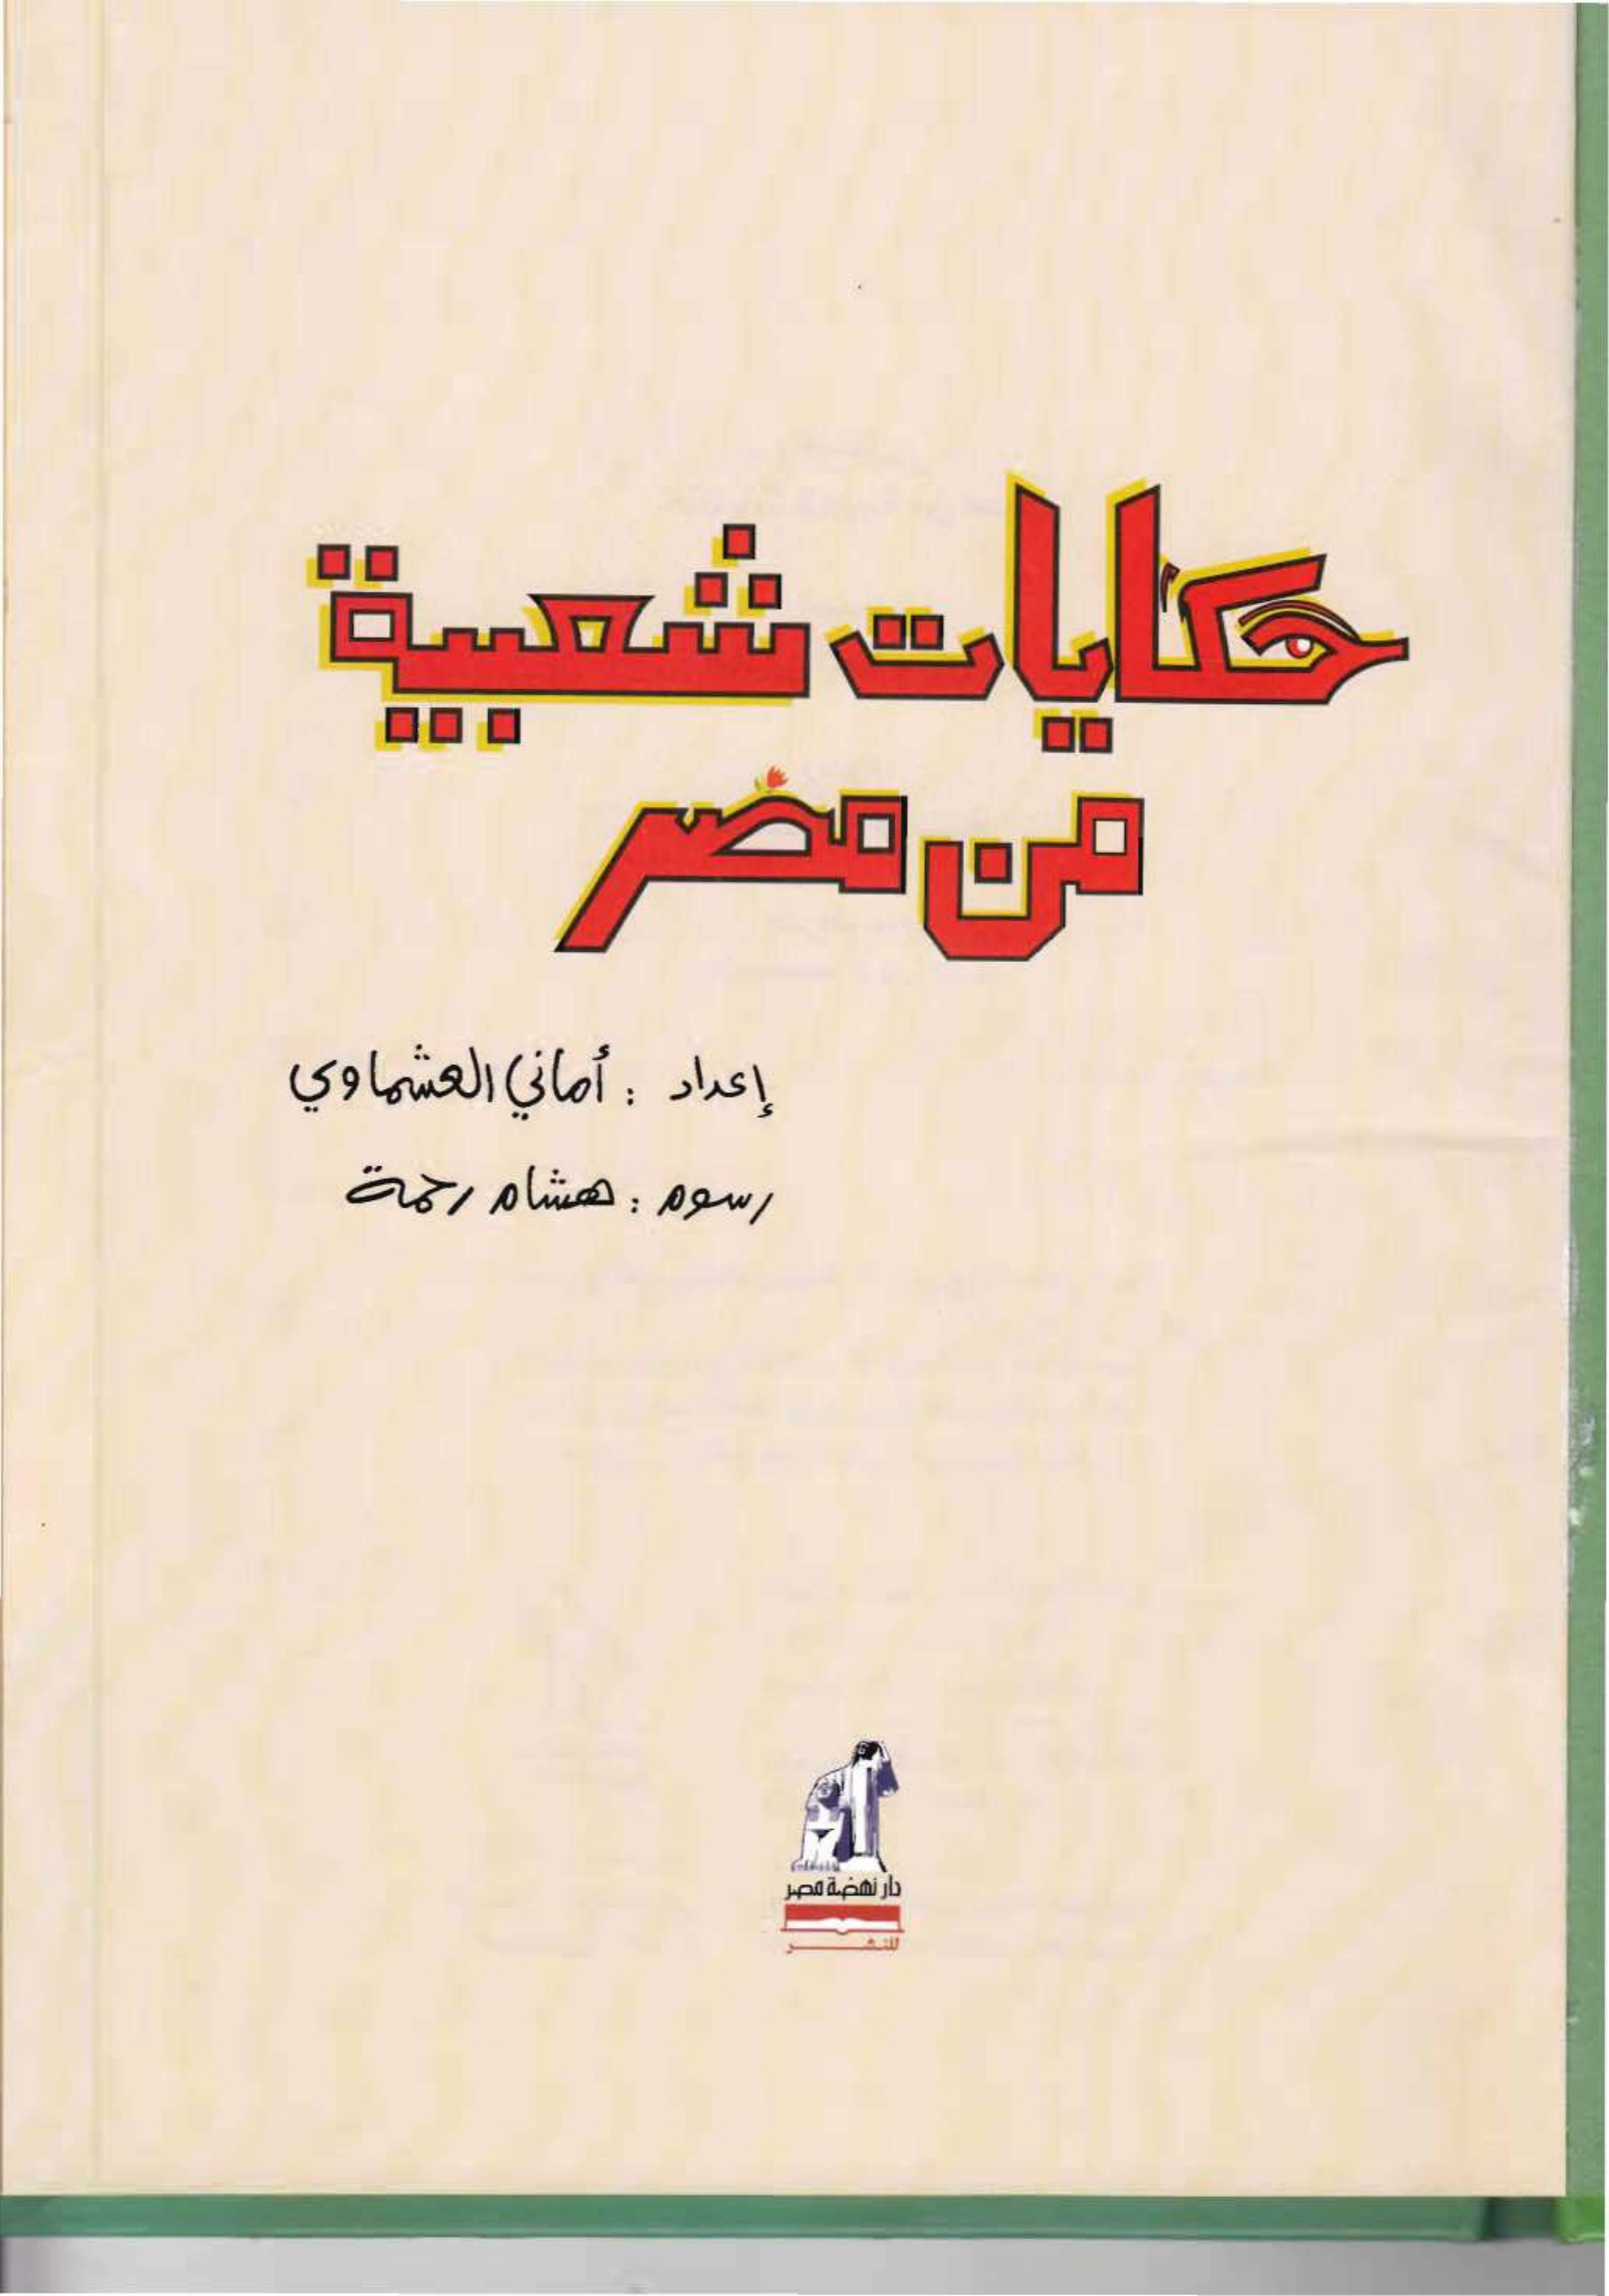 حكايات شعبية
من مصر
إعداد : أماني العشماوي
رسوم : هشام رحمة
دار نهضة مصر
للنشر